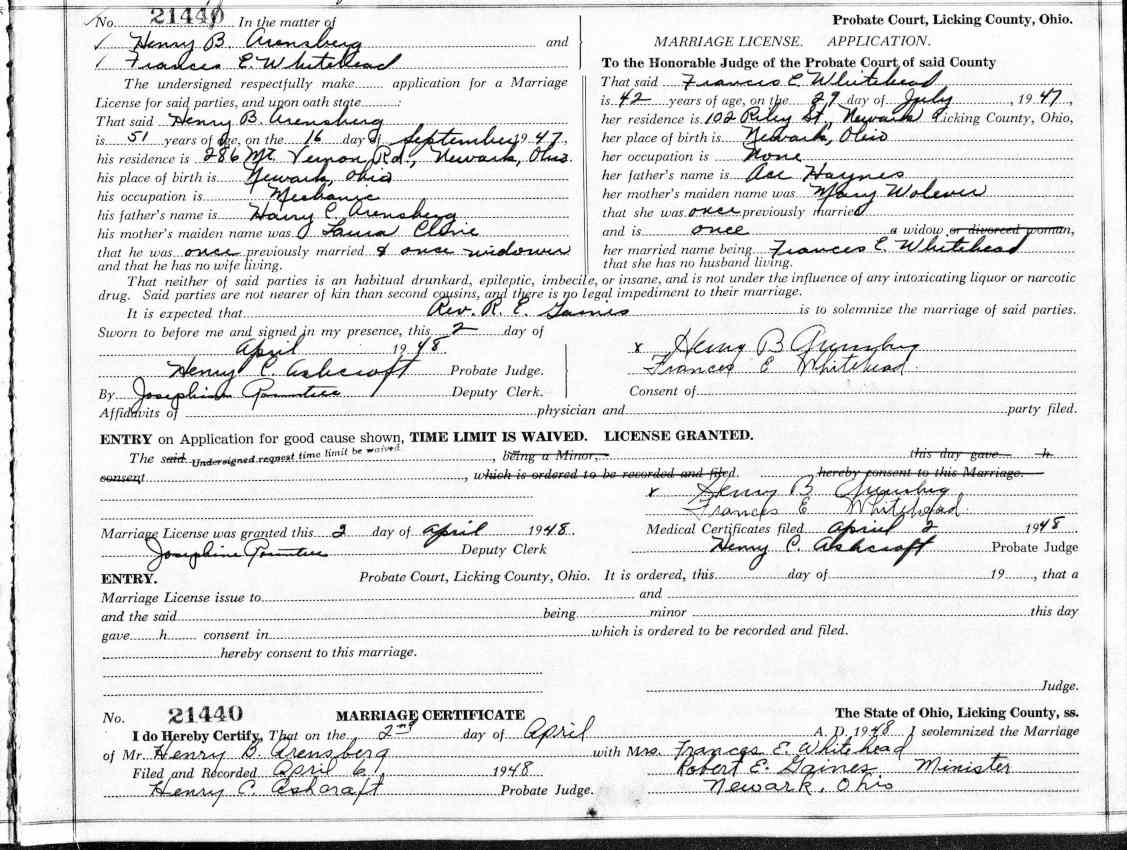 No. 21440 In the matter of
Henry B. Arensberg and
Frances E. Whitehead
The undersigned respectfully make........ application for a Marriage
License for said parties, and upon oath state........:
That said Henry B. Arensberg
is 51 years of age, on the 16 day of September 1947,
his residence is 286 Mt. Vernon Rd., Newark, Ohio.
his place of birth is Newark, Ohio
his occupation is Mechanic
his father's name is Harry C. Arensberg
his mother's maiden name was Laura Cline
that he was once previously married & once widower
and that he has no wife living.
Probate Court, Licking County, Ohio.
MARRIAGE LICENSE. APPLICATION.
To the Honorable Judge of the Probate Court of said County
That said Frances E Whitehead
is 42 years of age, on the 29 day of July, 1947,
her residence is 102 Riley St., Newark Licking County, Ohio,
her place of birth is Newark, Ohio
her occupation is None
her father's name is Ace Haynes
her mother's maiden name was Mary Wolever
that she was once previously married
and is once a widow or divorced woman,
her married name being Frances E. Whitehead
that she has no husband living.
That neither of said parties is an habitual drunkard, epileptic, imbecile, or insane, and is not under the influence of any intoxicating liquor or narcotic
drug. Said parties are not nearer of kin than second cousins, and there is no legal impediment to their marriage.
It is expected that Rev. R. E. Gaines is to solemnize the marriage of said parties.
Sworn to before me and signed in my presence, this 2 day of
April 1948.
Henry C. Ashcraft Probate Judge.
By Josephine Deputy Clerk.
x Henry B Arensberg
Frances E Whitehead.
Consent of
Affidavits of physician and party filed.
ENTRY on Application for good cause shown, TIME LIMIT IS WAIVED. LICENSE GRANTED.
The said Undersigned request time limit be waived, being a Minor, this day gave h
consent, which is ordered to be recorded and filed. hereby consent to this Marriage.
x Henry B Arensberg
Frances E Whitehead.
Marriage License was granted this 2 day of April 1948.
Josephine Deputy Clerk
Medical Certificates filed April 2 1948
Henry C. Ashcraft Probate Judge
ENTRY. Probate Court, Licking County, Ohio. It is ordered, this day of 19, that a
Marriage License issue to and
and the said being minor this day
gave h consent in which is ordered to be recorded and filed.
hereby consent to this marriage.
Judge.
No. 21440 MARRIAGE CERTIFICATE The State of Ohio, Licking County, ss.
I do Hereby Certify, That on the 2nd day of April A. D. 1948 I seolemnized the Marriage
of Mr. Henry B. Arensberg with Mrs. Frances E. Whitehead
Filed and Recorded April 6 1948 Robert E. Gaines Minister
Henry C. Ashcraft Probate Judge. Newark, Ohio